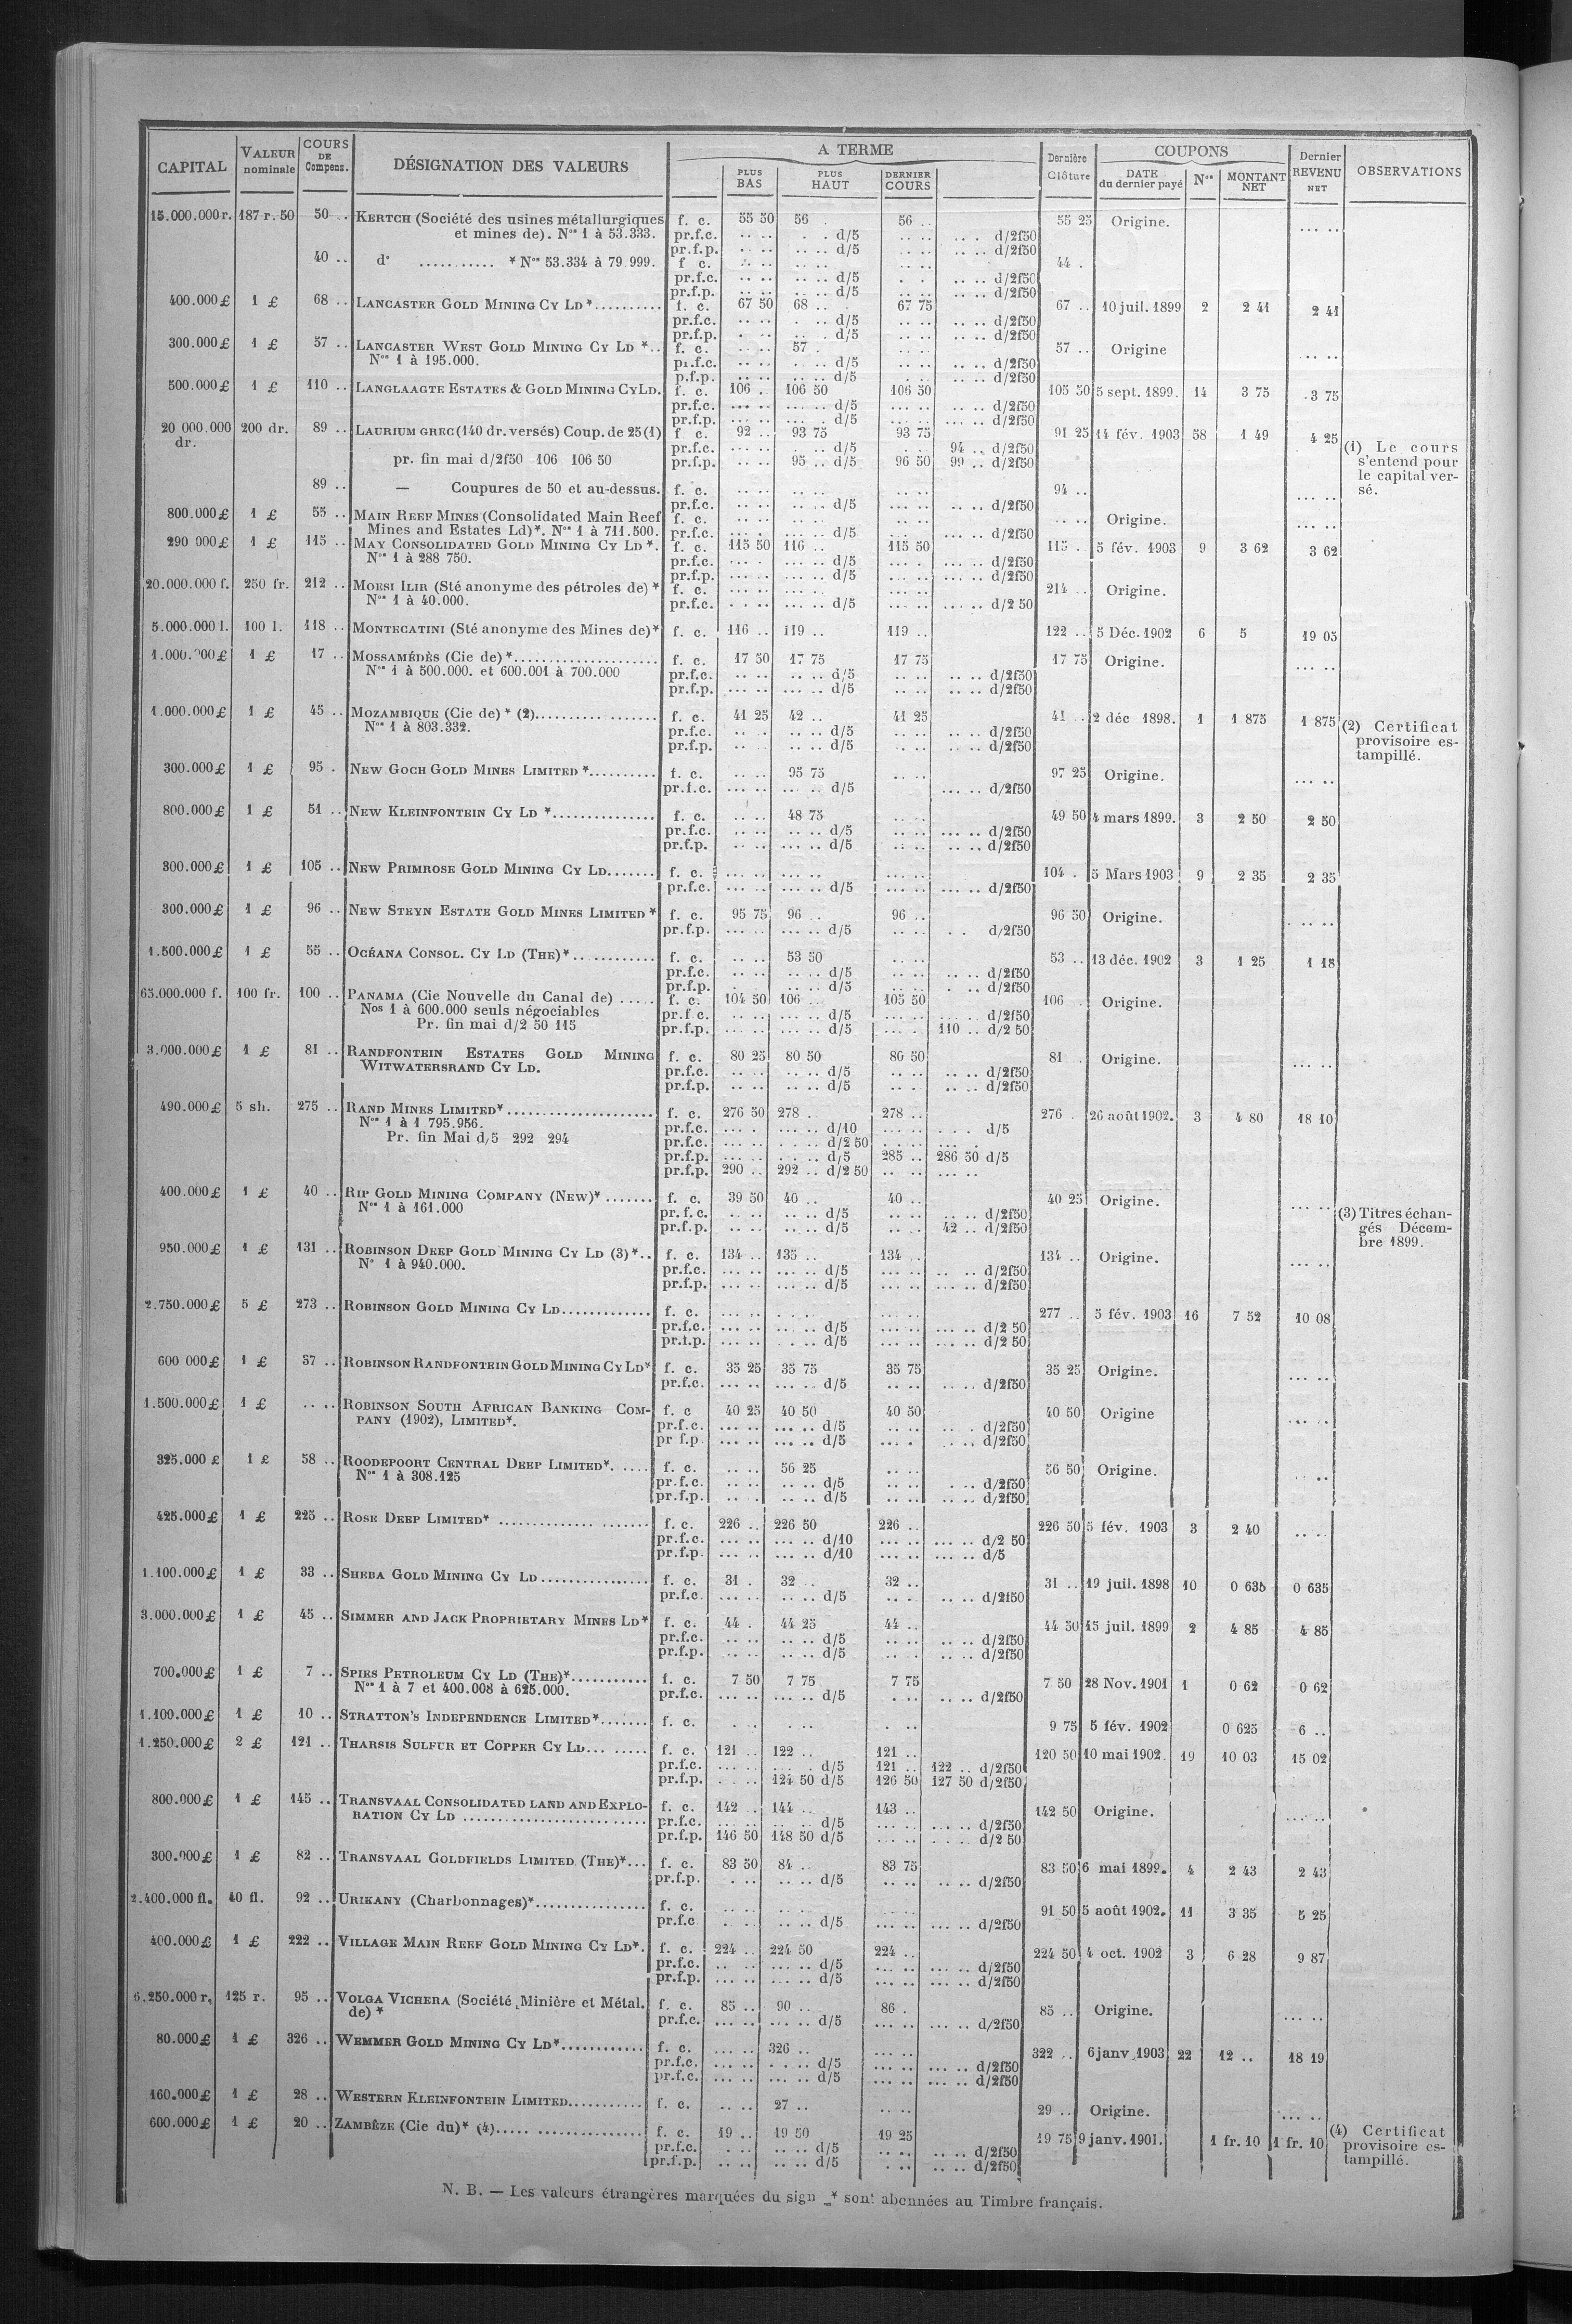 CAPITAL VALEUR nominale COURS DE Compens. DÉSIGNATION DES VALEURS A TERME PLUS BAS PLUS HAUT DERNIER COURS Dernière Clôture COUPONS DATE du dernier payé Nos MONTANT NET Dernier REVENU NET OBSERVATIONS
15.000.000 r. 187 r. 50 50 .. KERTCH (Société des usines métallurgiques f. c. 55 50 56 . 56 .. 55 25 Origine. ... ..
et mines de). Nos 1 à 53.333. pr.f.c. .. .. . . d/5 .. .. .. . d/2f50
pr.f.p. .. .. .. .. d/5 .. .. .. .. d/2f50
40 .. d° ........... * Nos 53.334 à 79 999. f c. .. .. .. .. .. .. 44 .
pr.f.c. .. .. .. .. d/5 . . .. .. d/2f50
pr.f.p. .. .. .. .. d/5 .. .. .. .. d/2f50
400.000 £ 1 £ 68 .. LANCASTER GOLD MINING CY LD *.......... f. c. 67 50 68 .. 67 75 67 .. 10 juil. 1899 2 2 41 2 41
pr.f.c. .. .. . .. d/5 .. .. .. .. d/2f50
pr.f.p. . .. .. .. d/5 .. .. .. .. d/2f50
300.000 £ 1 £ 57 .. LANCASTER WEST GOLD MINING CY LD *.. f. c. .. .. 57 . .. .. 57 .. Origine .. ..
Nos 1 à 195.000. p1.f.c. .. .. . .. d/5 .. .. .. .. d/2f50
p.f.p. .. .. .. .. d/5 . .. .. .. d/2f50
500.000 £ 1 £ 110 .. LANGLAAGTE ESTATES & GOLD MINING CY LD. f. c. 106 . 106 50 106 50 105 50 5 sept. 1899. 14 3 75 3 75
pr.f.c. ... .. ... .. d/5 ... .. .. .. d/2f50
pr.f.p. ... .. ... . d/5 ... .. .. .. d/2f50
20 000.000 dr. 200 dr. 89 .. LAURIUM GREC (140 dr. versés) Coup. de 25 (1) f c. 92 .. 93 75 93 75 91 25 14 fév. 1903 58 1 49 4 25
pr.f.c. ... .. . .. d/5 . .. 94 .. d/2f50 (1) Le cours
pr. fin mai d/2f50 106 106 50 pr.f.p. .. .. 95 .. d/5 96 50 99 .. d/2f50 s'entend pour
le capital ver-
89 .. — Coupures de 50 et au-dessus. f. c. .. .. .. .. .. .. 94 .. ... .. sé.
pr.f.c. .. .. .. .. d/5 .. .. .. .. d/2f50
800.000 £ 1 £ 55 .. MAIN REEF MINES (Consolidated Main Reef f. c. .. .. .. .. .. .. .. .. Origine. ... ..
Mines and Estates Ld)*. Nos 1 à 711.500. pr.f.c. ... . ... .. d/5 ... . ... .. d/2f50
290 000 £ 1 £ 115 .. MAY CONSOLIDATED GOLD MINING CY LD *. f. c. 115 50 116 .. 115 50 115 . 5 fév. 1903 9 3 62 3 62
Nos 1 à 288 750. pr.f.c. ... . ... .. d/5 ... . ... .. d/2f50
pr.f.p. ... .. ... .. d/5 ... . ... .. d/2f50
20.000.000 f. 250 fr. 212 .. MOESI ILIR (Sté anonyme des pétroles de) * f. c. ... .. ... .. ... .. 214 .. Origine.
Nos 1 à 40.000. pr.f.c. . .. .. ... .. d/5 ... .. ... .. d/2 50
5.000.000 l. 100 l. 118 .. MONTECATINI (Sté anonyme des Mines de)* f. c. 116 .. 119 .. 119 .. 122 .. 5 Déc. 1902 6 5 19 05
1.000.000 £ 1 £ 17 .. MOSSAMÉDÈS (Cie de) *..................... f. c. 17 50 17 75 17 75 17 75 Origine. ... ..
Nos 1 à 500.000. et 600.001 à 700.000 pr.f.c. .. .. .. .. d/5 .. .. .. .. d/2f50
pr.f.p. ... .. ... .. d/5 .. .. .. .. d/2f50
1.000.000 £ 1 £ 45 .. MOZAMBIQUE (Cie de) * (2).................. f. c. 41 25 42 .. 41 25 41 .. 2 déc 1898. 1 1 875 1 875 (2) Certificat
Nos 1 à 803.332. pr.f.c. .. . .. .. d/5 .. .. .. .. d/2f50 provisoire es-
pr.f.p. .. . .. .. d/5 .. .. .. .. d/2f50 tampillé.
300.000 £ 1 £ 95 . NEW GOCH GOLD MINES LIMITED *.......... f. c. .. .. 95 75 .. .. 97 25 Origine. ... ..
pr.f.c. ... .. ... .. d/5 ... .. d/2f50
800.000 £ 1 £ 51 .. NEW KLEINFONTEIN CY LD *............... f. c. .. .. 48 75 .. .. 49 50 4 mars 1899. 3 2 50 2 50
pr.f.c. .. .. .. .. d/5 .. .. ... .. d/2f50
pr.f.p. .. .. .. .. d/5 .. .. .. .. d/2f50
300.000 £ 1 £ 105 .. NEW PRIMROSE GOLD MINING CY LD....... f. c. ... .. ... .. ... .. 104 . 5 Mars 1903 9 2 35 2 35
pr.f.c. ... .. ... .. d/5 ... .. ... .. d/2f50
300.000 £ 1 £ 96 .. NEW STEYN ESTATE GOLD MINES LIMITED * f. c. 95 75 96 .. 96 .. 96 50 Origine. ... ..
pr.f.p. ... .. ... .. d/5 .. .. . . d/2f50
1.500.000 £ 1 £ 55 .. OCÉANA CONSOL. CY LD (THE)*............ f. c. .. .. 53 50 .. .. 53 .. 13 déc. 1902 3 1 25 1 18
pr.f.c. .. .. .. .. d/5 .. .. .. .. d/2f50
pr.f.p. . .. .. d/5 .. .. . .. d/2f50
65.000.000 f. 100 fr. 100 .. PANAMA (Cie Nouvelle du Canal de) ..... f. c. 104 50 106 .. 105 50 106 . Origine.
Nos 1 à 600.000 seuls négociables pr.f c. .. .. ... .. d/5 ... .. .. .. d/2f50
Pr. fin mai d/2 50 115 pr.f.p. ... .. ... .. d/5 ... . 110 .. d/2 50
3.000.000 £ 1 £ 81 .. RANDFONTEIN ESTATES GOLD MINING f. c. 80 25 80 50 80 50 81 .. Origine. ... ..
WITWATERSRAND CY LD. pr.f.c. .. .. .. .. d/5 .. . .. .. d/2f50
pr.f.p. .. .. .. .. d/5 .. . .. .. d/2f50
490.000 £ 5 sh. 275 .. RAND MINES LIMITED*..................... f. c. 276 50 278 . 278 .. 276 . 26 août 1902. 3 4 80 18 10
Nos 1 à 1 795.956. pr.f.c. ... .. ... .. d/10 ... .. . . . d/5
Pr. fin Mai d/5 292 294 pr.f.c. ... .. . . .. d/2 50 . .. .. ... .
pr.f.p. ... .. . . .. d/5 285 .. 286 50 d/5
pr.f.p. 290 .. 292 .. d/2 50 .. .. ... ..
400.000 £ 1 £ 40 .. RIP GOLD MINING COMPANY (NEW)*....... f. c. 39 50 40 .. 40 .. 40 25 Origine. ... ..
Nos 1 à 161.000 pr.f.c. .. .. .. .. d/5 .. .. .. .. d/2f50 (3) Titres échan-
pr.f.p. .. .. .. .. d/5 .. .. 42 .. d/2f50 gés Décem-
bre 1899.
950.000 £ 1 £ 131 .. ROBINSON DEEP GOLD MINING CY LD (3)*.. f. c. 134 .. 135 .. 134 .. 134 .. Origine. ... ..
N° 1 à 940.000. pr.f.c. ... .. ... .. d/5 ... .. .. .. d/2f50
pr.f.p. ... .. ... .. d/5 ... .. ... .. d/2f50
2.750.000 £ 5 £ 273 .. ROBINSON GOLD MINING CY LD............ f. c. ... .. ... .. ... .. 277 .. 5 fév. 1903 16 7 52 10 08
pr.f.c. ... .. ... .. d/5 ... .. ... .. d/2 50
pr.f.p. ... .. ... .. d/5 ... .. ... .. d/2 50
600 000 £ 1 £ 37 .. ROBINSON RANDFONTEIN GOLD MINING CY LD* f. c. 35 25 35 75 35 75 35 25 Origine. ... ..
pr.f.c. ... .. ... .. d/5 .. .. .. .. d/2f50
1.500.000 £ 1 £ .. .. ROBINSON SOUTH AFRICAN BANKING COM- f. c 40 25 40 50 40 50 40 50 Origine ... .
PANY (1902), LIMITED*. pr.f.c. ... .. ... .. d/5 .. .. .. . d/2f50
pr f.p. ... .. ... .. d/5 ... . . .. d/2f50
325.000 £ 1 £ 58 .. ROODEPOORT CENTRAL DEEP LIMITED*..... f. c. .. .. 56 25 .. .. 56 50 Origine. ..
Nos 1 à 308.125 pr.f.c. .. .. .. .. d/5 .. .. . .. d/2f50
pr.f.p. .. . .. .. d/5 .. .. .. .. d/2f50
425.000 £ 1 £ 225 .. ROSE DEEP LIMITED* ..................... f. c. 226 .. 226 50 226 .. 226 50 5 fév. 1903 3 2 40 .. ..
pr.f.c. ... .. ... .. d/10 ... .. ... .. d/2 50
pr.f.p. ... .. ... .. d/10 ... .. ... .. d/5
1.100.000 £ 1 £ 33 .. SHEBA GOLD MINING CY LD................ f. c. 31 . 32 .. 32 .. 31 .. 19 juil. 1898 10 0 635 0 635
pr.f.c. ... .. ... .. d/5 .. . .. .. d/2f50
3.000.000 £ 1 £ 45 .. SIMMER AND JACK PROPRIETARY MINES LD* f. c. 44 . 44 25 44 .. 44 50 15 juil. 1899 2 4 85 4 85
pr.f.c. .. .. .. .. d/5 .. .. .. .. d/2f50
pr.f.p. .. .. .. .. d/5 .. .. .. .. d/2f50
700.000 £ 1 £ 7 .. SPIES PETROLEUM CY LD (THE)*........... f. c. 7 50 7 75 7 75 7 50 28 Nov. 1901 1 0 62 0 62
Nos 1 à 7 et 400.008 à 625.000. pr.f.c. ... .. ... .. d/5 . .. .. .. d/2f50
1.100.000 £ 1 £ 10 .. STRATTON'S INDEPENDENCE LIMITED*....... f. c. . .. . .. . .. 9 75 5 fév. 1902 0 625 6 ..
1.250.000 £ 2 £ 121 .. THARSIS SULFUR ET COPPER CY LD... ..... f. c. 121 .. 122 .. 121 .. 120 50 10 mai 1902. 19 10 03 15 02
pr.f.c. ... .. ... . d/5 121 .. 122 .. d/2f50
pr.f.p. . . .. 124 50 d/5 126 50 127 50 d/2f50
800.000 £ 1 £ 145 .. TRANSVAAL CONSOLIDATED LAND AND EXPLO- f. c. 142 .. 144 .. 143 .. 142 50 Origine. ... ..
RATION CY LD ........................... pr.f.c. ... .. .. .. d/5 ... . ... .. d/2f50
pr.f.p. 146 50 148 50 d/5 ... . . . .. d/2 50
300.000 £ 1 £ 82 .. TRANSVAAL GOLDFIELDS LIMITED (THE)*... f. c. 83 50 84 .. 83 75 83 50 6 mai 1899. 4 2 43 2 43
pr.f.p. . .. .. .. d/5 .. . .. .. d/2f50
2.400.000 fl. 40 fl. 92 .. URIKANY (Charbonnages)*................ f. c. .. .. .. .. .. 91 50 5 août 1902. 11 3 35 5 25
pr.f.c . .. .. .. d/5 ... .. ... .. d/2f50
400.000 £ 1 £ 222 .. VILLAGE MAIN REEF GOLD MINING CY LD*. f. c. 224 .. 224 50 224 .. 224 50 4 oct. 1902 3 6 28 9 87
pr.f.c. .. .. ... .. d/5 ... .. ... .. d/2f50
pr.f.p. ... .. ... .. d/5 ... .. ... .. d/2f50
6.250.000 r. 125 r. 95 .. VOLGA VICHERA (Société Minière et Métal. f. c. 85 .. 90 .. 86 . 85 .. Origine. ... ..
de) * pr.f.c. ... .. ... .. d/5 ... .. ... .. d/2f50
80.000 £ 1 £ 326 .. WEMMER GOLD MINING CY LD*............ f. c. ... .. 326 .. ... .. 322 .. 6 janv 1903 22 12 .. 18 19
pr.f.c. ... .. . . .. d/5 ... .. ... .. d/2f50
pr.f.c. ... .. ... .. d/5 ... .. ... .. d/2f50
160.000 £ 1 £ 28 .. WESTERN KLEINFONTEIN LIMITED.......... f. c. .. .. 27 .. .. .. 29 .. Origine. ... ..
600.000 £ 1 £ 20 .. ZAMBÈZE (Cie du)* (4)..................... f. c. 19 .. 19 50 19 25 19 75 9 janv. 1901. 1 fr. 10 1 fr. 10 (4) Certificat
pr.f.c. . .. .. .. d/5 .. .. .. .. d/2f50 provisoire es-
pr.f.p. .. .. .. .. d/5 . .. .. .. d/2f50 tampillé.
N. B. — Les valeurs étrangères marquées du sign _* sont abonnées au Timbre français.